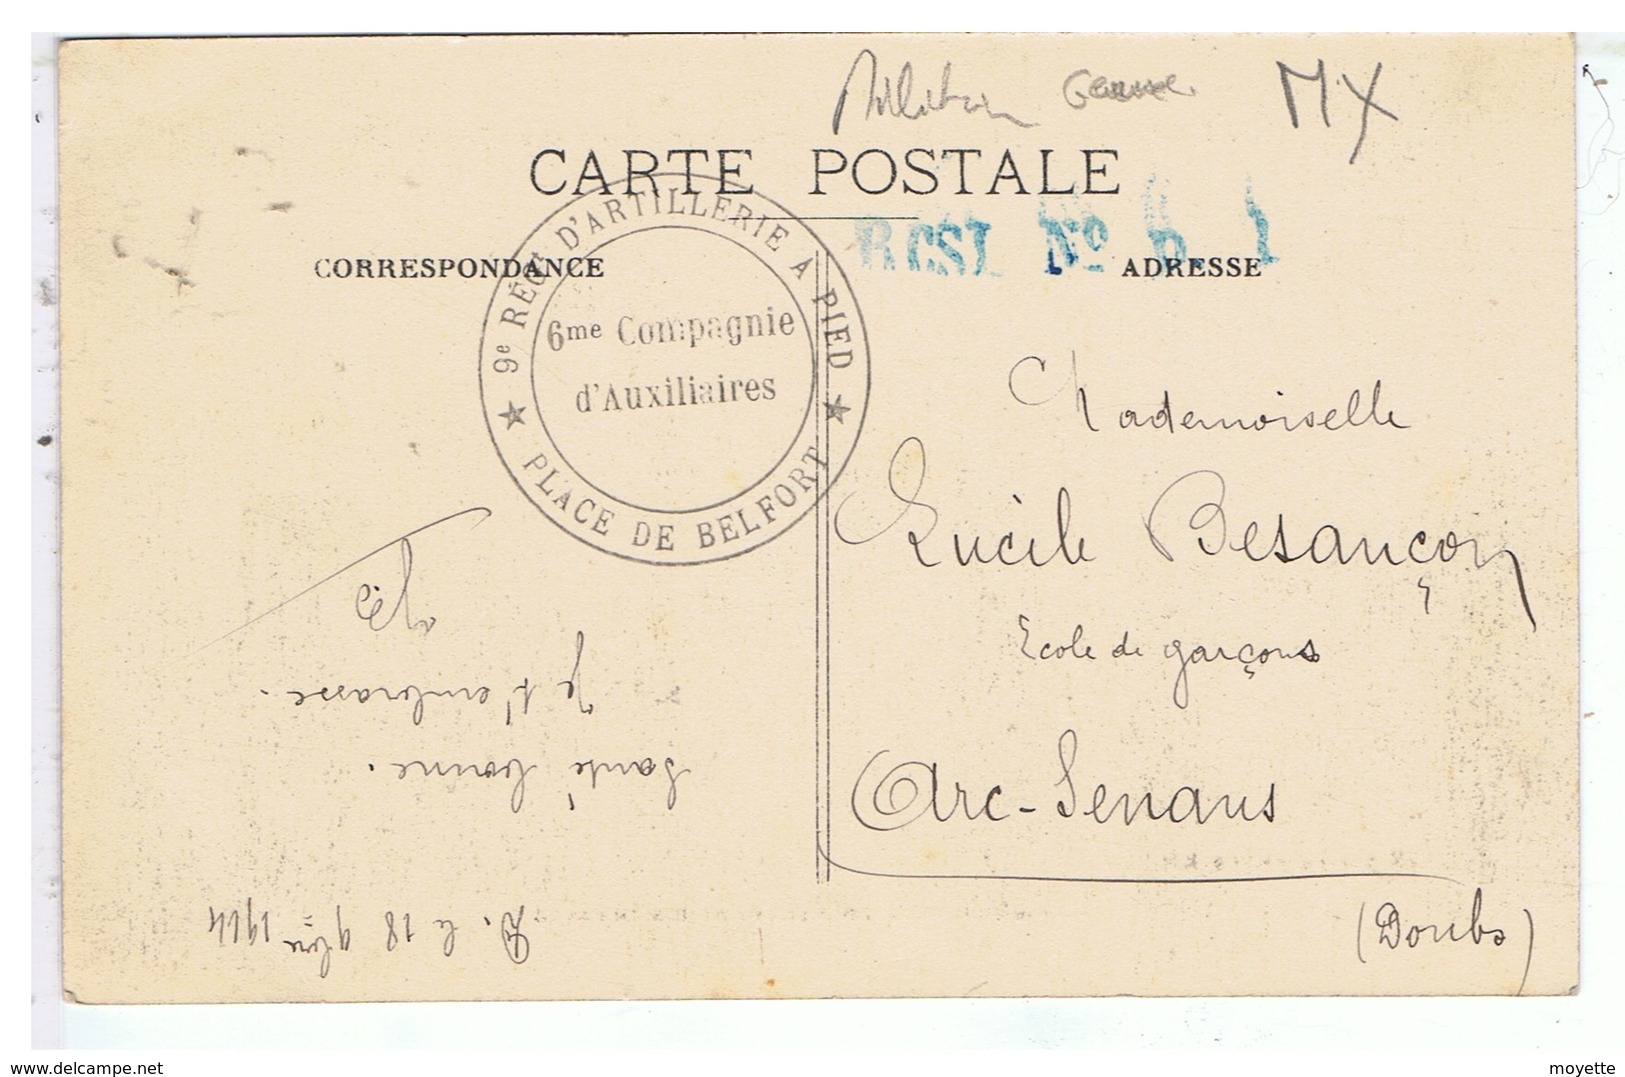 MX
CARTE POSTALE
CORRESPONDANCE
ADRESSE
9e RÉGt D'ARTILLERIE A PIED
6me Compagnie
d'Auxiliaires
★ PLACE DE BELFORT ★
Mademoiselle
Lucile Besançon
Ecole de garçons
Arc-Senans
(Doubs)
B. le 18 9bre 1914
Santé bonne.
Je t'embrasse.
www.delcampe.net
moyette